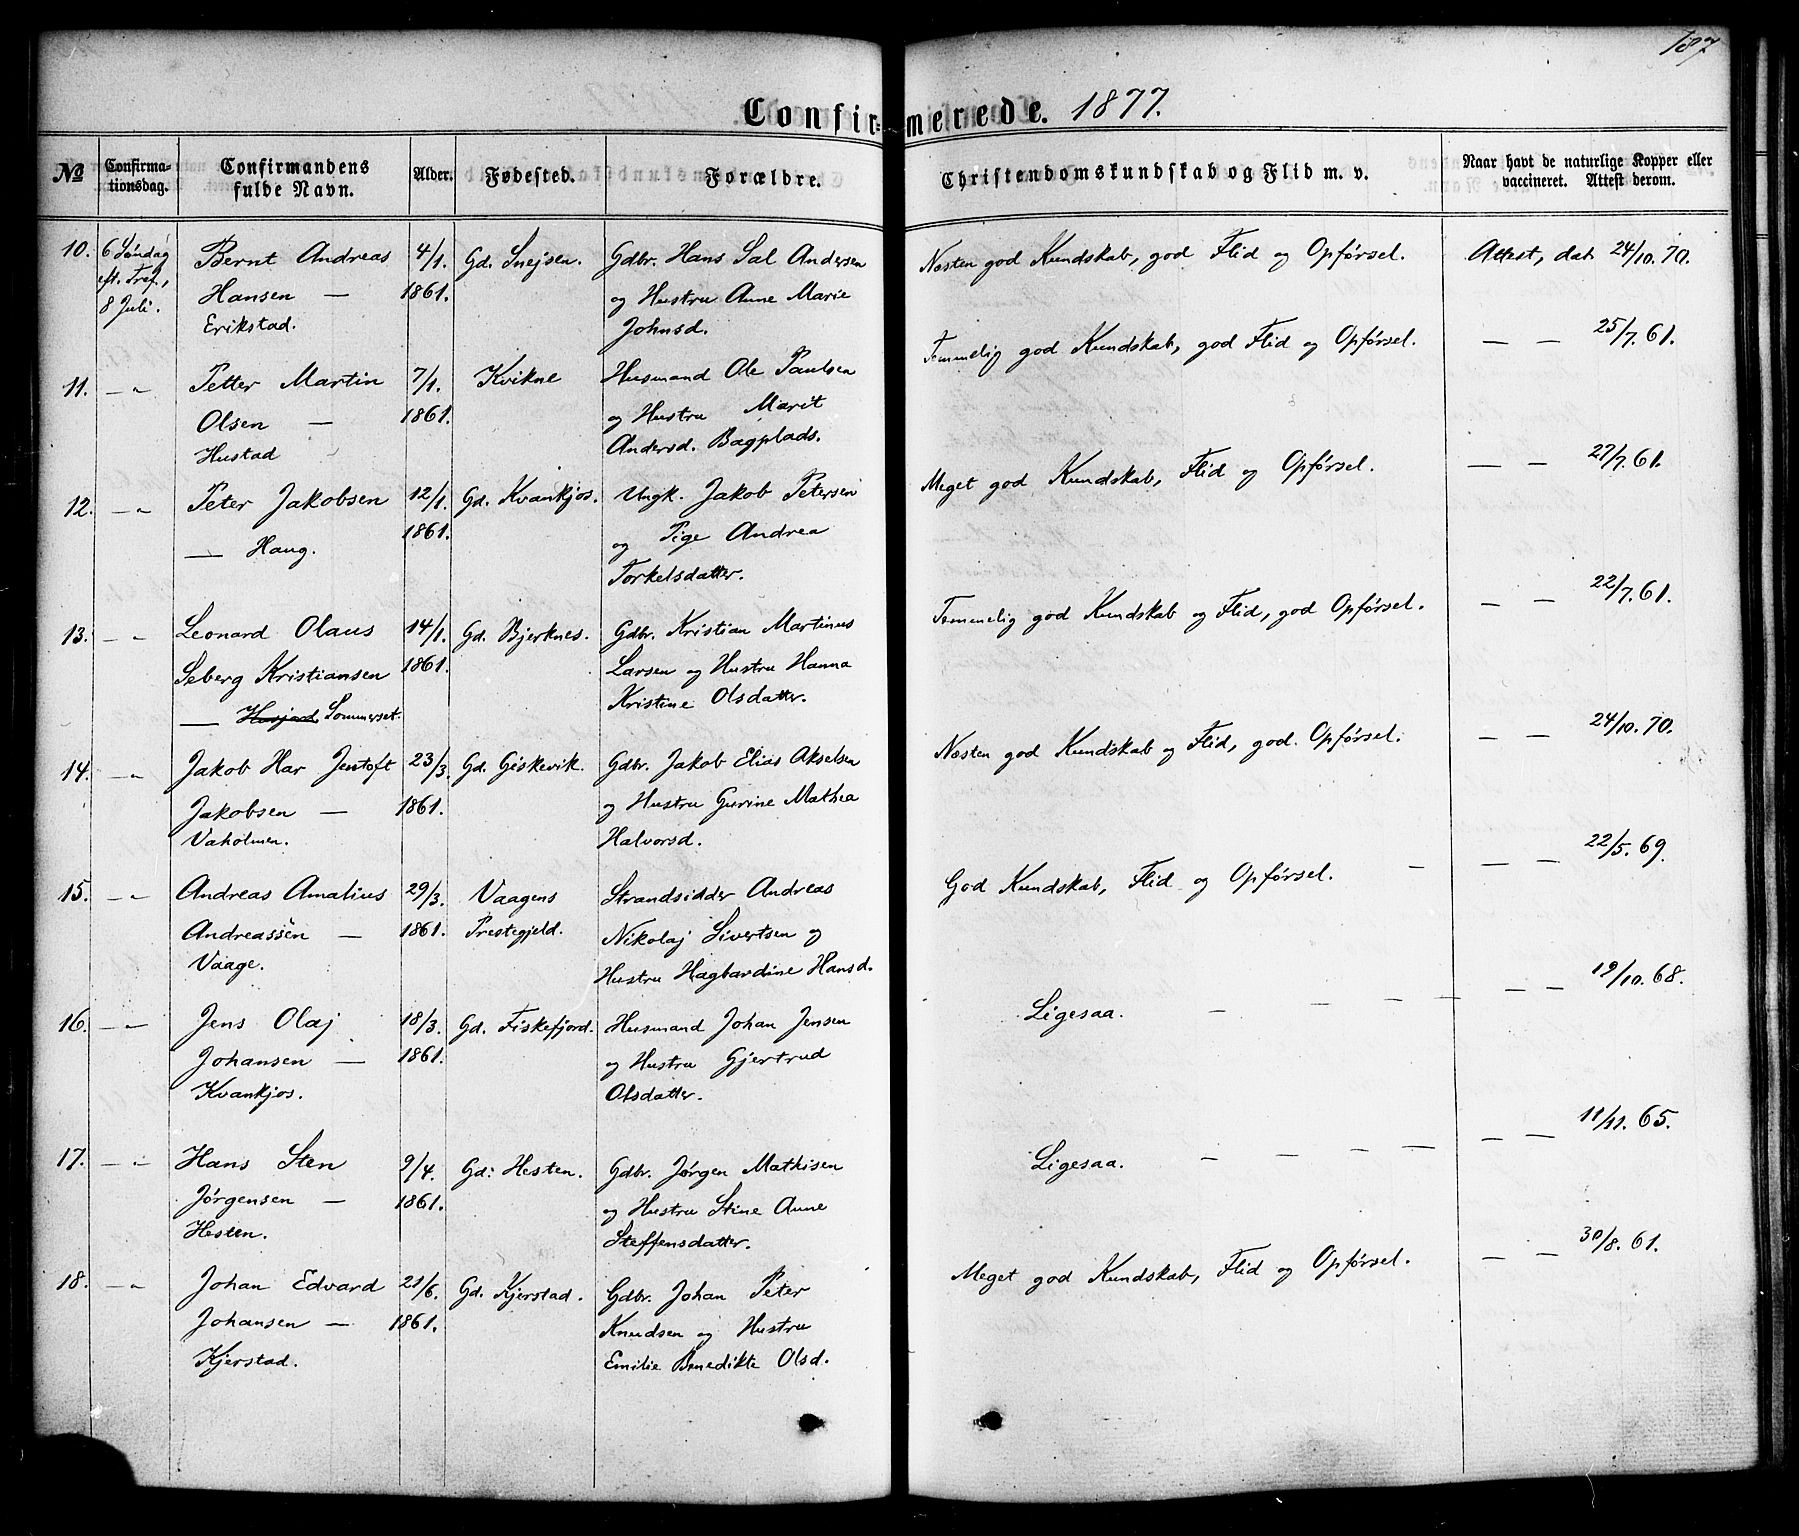 187
Confirmerede. 1877.
№ Confirmationsdag. Confirmandens fulde Navn. Alder. Fødested. Forældre. Christendomskundskab og Flid m. v. Naar havt de naturlige Kopper eller vaccineret. Attest derom.
10. 6 Søndag Bernt Andreas 4/1. Gd. Snejsen. Gdbr. Hans Sal Andersen Næsten god Kundskab, god Flid og Opførsel. Attest, dat. 24/10. 70.
eft. Tref., Hansen — 1861. og Hustru Anne Marie
8 Juli. Erikstad. Johnsd.
11. — „ Petter Martin 7/1. Kvikne Husmand Ole Paulsen Temmelig god Kundskab, god Flid og Opførsel. — — 25/7. 61.
Olsen — 1861. og Hustru Marit
Hustad Andersd. Bagplads.
12. — „ Peter Jakobsen 12/1. Gd. Kvankjos. Ungk. Jakob Petersen Meget god Kundskab, Flid og Opførsel. — — 27/7. 61.
— Haug. 1861. og Pige Andrea
Torkelsdatter.
13. — „ Leonard Olaus 14/1. Gd. Bjerknes. Gdbr. Kristian Martinus Temmelig god Kundskab og Flid, god Opførsel. — — 22/7. 61.
Seberg Kristiansen 1861. Larsen og Hustru Hanna
— Husjord Sommerset. Kristine Olsdatter.
14. — „ Jakob Har Jentoft 23/3. Gd. Giskevik. Gdbr. Jakob Elias Akselsen Næsten god Kundskab og Flid, god Opførsel. — — 24/10. 70.
Jakobsen — 1861. og Hustru Gurine Mathea
Vaholmen. Halvorsd.
15. — „ Andreas Amalius 29/3. Vaagens Strandsidder Andreas God Kundskab, Flid og Opførsel. — — — 22/5. 69.
Andreassen — 1861. Prestegjeld. Nikolaj Sivertsen og
Vaage. Hustru Hagbardine Hansd.
16. — „ Jens Olaj 18/3. Gd. Fiskefjord. Husmand Johan Jensen Ligesaa. — — — — — — 19/10. 68.
Johansen — 1861. og Hustru Gjertrud
Kvankjos. Olsdatter.
17. — „ Hans Sten 9/4. Gd. Hesten. Gdbr. Jørgen Mathisen Ligesaa. — — — — — — — 11/11. 65.
Jørgensen — 1861. og Hustru Stine Anne
Hesten. Steffensdatter.
18. — „ Johan Edvard 21/6. Gd. Kjerstad. Gdbr. Johan Peter Meget god Kundskab, Flid og Opførsel. — — 30/8. 61.
Johansen — 1861. Knudsen og Hustru
Kjerstad. Emilie Benedikte Olsd.